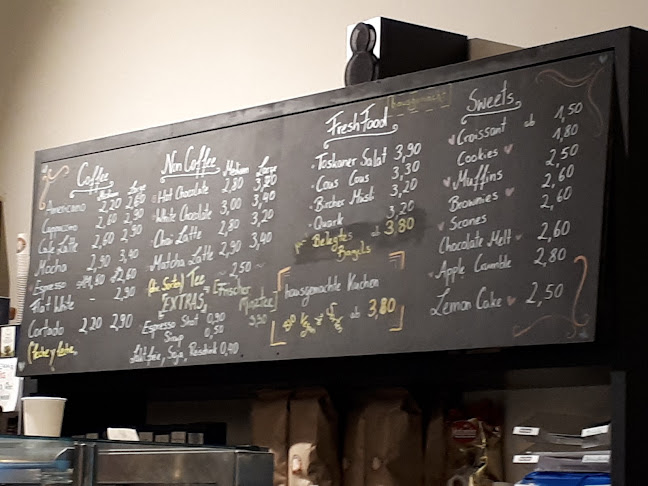 Coffee
Medium Large
Americano 2,20 2,60
Cappuccino 2,60 2,90
Café Latte 2,60 2,90
Mocha 2,90 3,40
Espresso 2,60
Flat White - 2,90
Cortado 2,20 2,90
(Leche y Leche)
Non Coffee
Medium Large
Hot Chocolate 2,80 3,20
White Chocolate 3,00 3,40
Chai Latte 2,80 3,20
Matcha Latte 2,90 3,40
Tee ~ 2,50 ~
EXTRAS
Frischer
Minztee
Espresso Shot 0,90
Sirup 0,50
Laktfrei, Soja, 0,40
Fresh Food
hausgemacht
Toskaner Salat 3,90
Cous Cous 3,30
Bircher Müsli 3,20
Quark 3,20
Belegtes ab 3,80
Bagels
hausgemachte Kuchen
ab 3,80
Sweets
Croissant ab 1,50
Cookies 1,80
Muffins 2,50
Brownies 2,60
Scones 2,60
Chocolate Melt 2,60
Apple Crumble 2,80
Lemon Cake 2,50